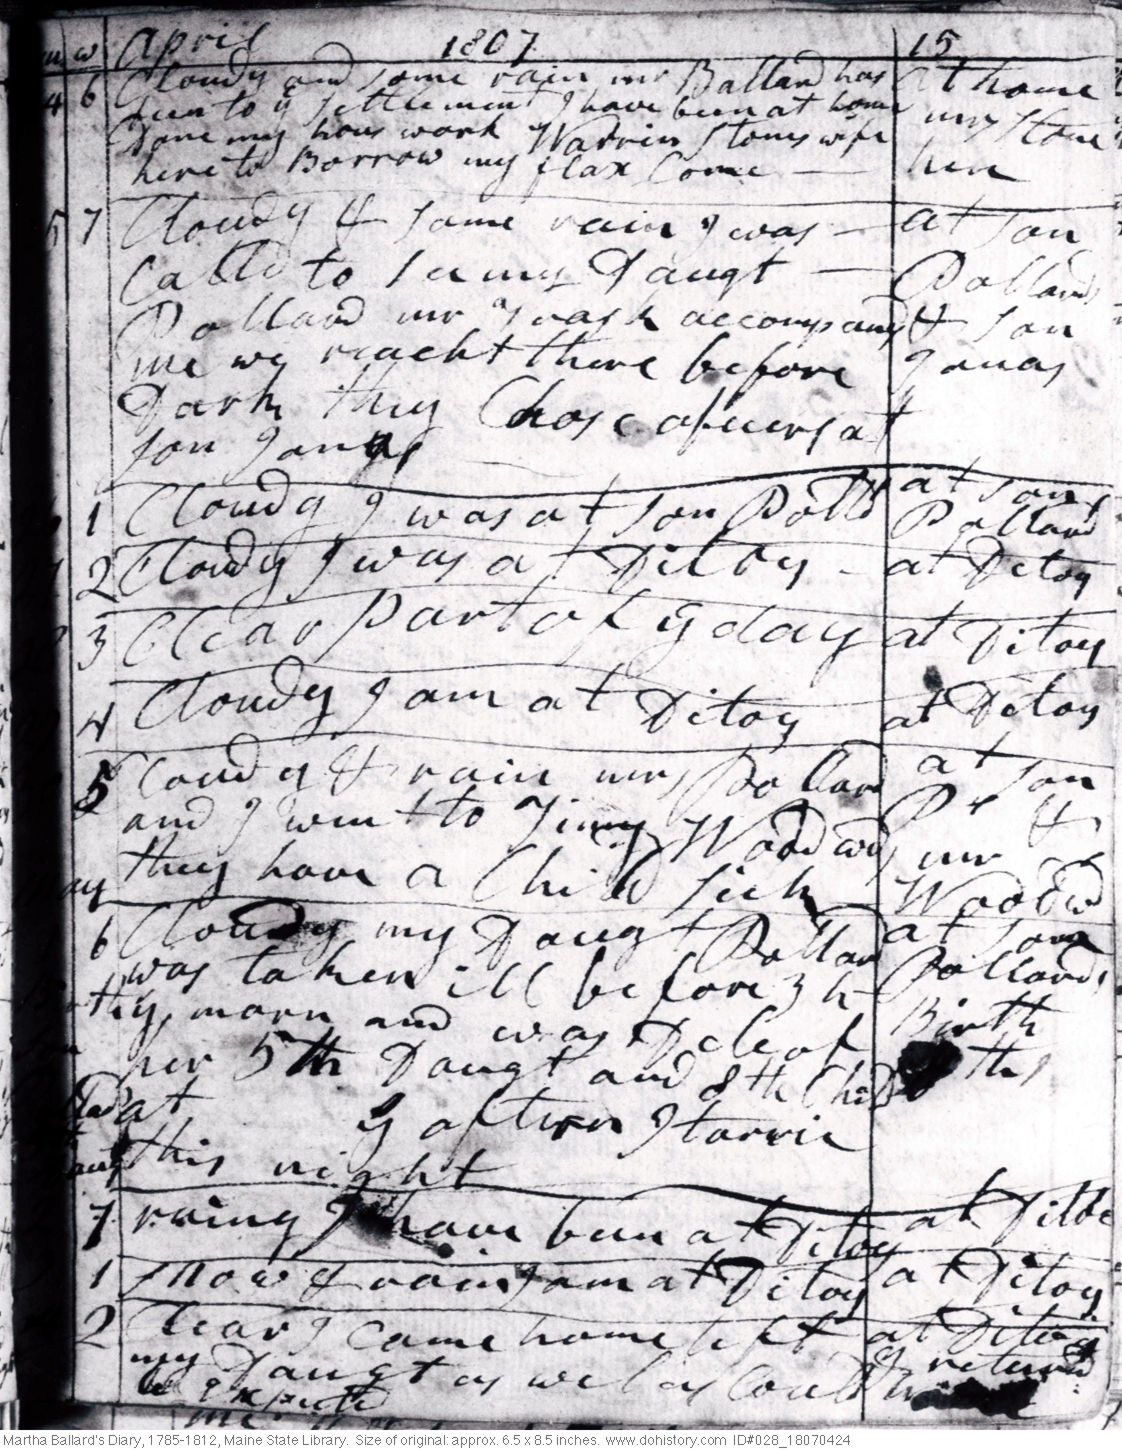 m w April 1807 15
4 6 Cloudy and some rain mr Ballard has At home
been to ye settlement I have been at home mrs Stone
Done my hous work Warrin Stones wife here
here to Borrow my flax Come
5 7 Cloudy & some rain I was at son
Calld to see my Daugt Pollards
Pollard mr accompand & son
me we reacht there before Jonas
Dark they Chose officers at
son Jonas
1 Cloudy I was at son Polld at sons
Pollard
2 Cloudy I was at Ditoy at Ditoy
3 Clear part of ye day at Ditoy
4 Cloudy I am at Ditoy at Ditoy
5 Cloudy & rain mrs Pollard at son
and I went to Jimy Woodwd Pr &
they have a Child sick mr
Woodwd
6 Cloudy my Daugt Pollard at sons
was taken ill before 3 h Pollards
ys morn and was Dld of Birth
her 5th Daugt and 8th Child ths
at ye aftern I tarrie
this night
7 raing I have been at Ditoy at Ditoe
1 snow & rain I am at Ditoy at Ditoy
2 Clear I came home left at Ditoy
my Daugt as wel as Could & returnd
be Expected
Martha Ballard's Diary, 1785-1812, Maine State Library. Size of original: approx. 6.5 x 8.5 inches. www.dohistory.com ID#028_18070424